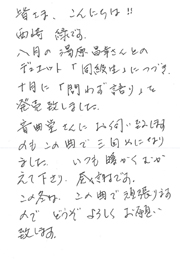 皆さま、こんにちは!!
西崎 緑です。
八月の湯原昌幸さんとの
デュエット「同級生」につづき、
十月に「問わず語り」を
発売致しました。
音曲堂さんにお伺い致します
のもこの曲で三回めになり
ました。いつも暖かくむか
えて下さり、感謝です。
この冬は、この曲で頑張ります
ので どうぞ よろしく お願い
致します。